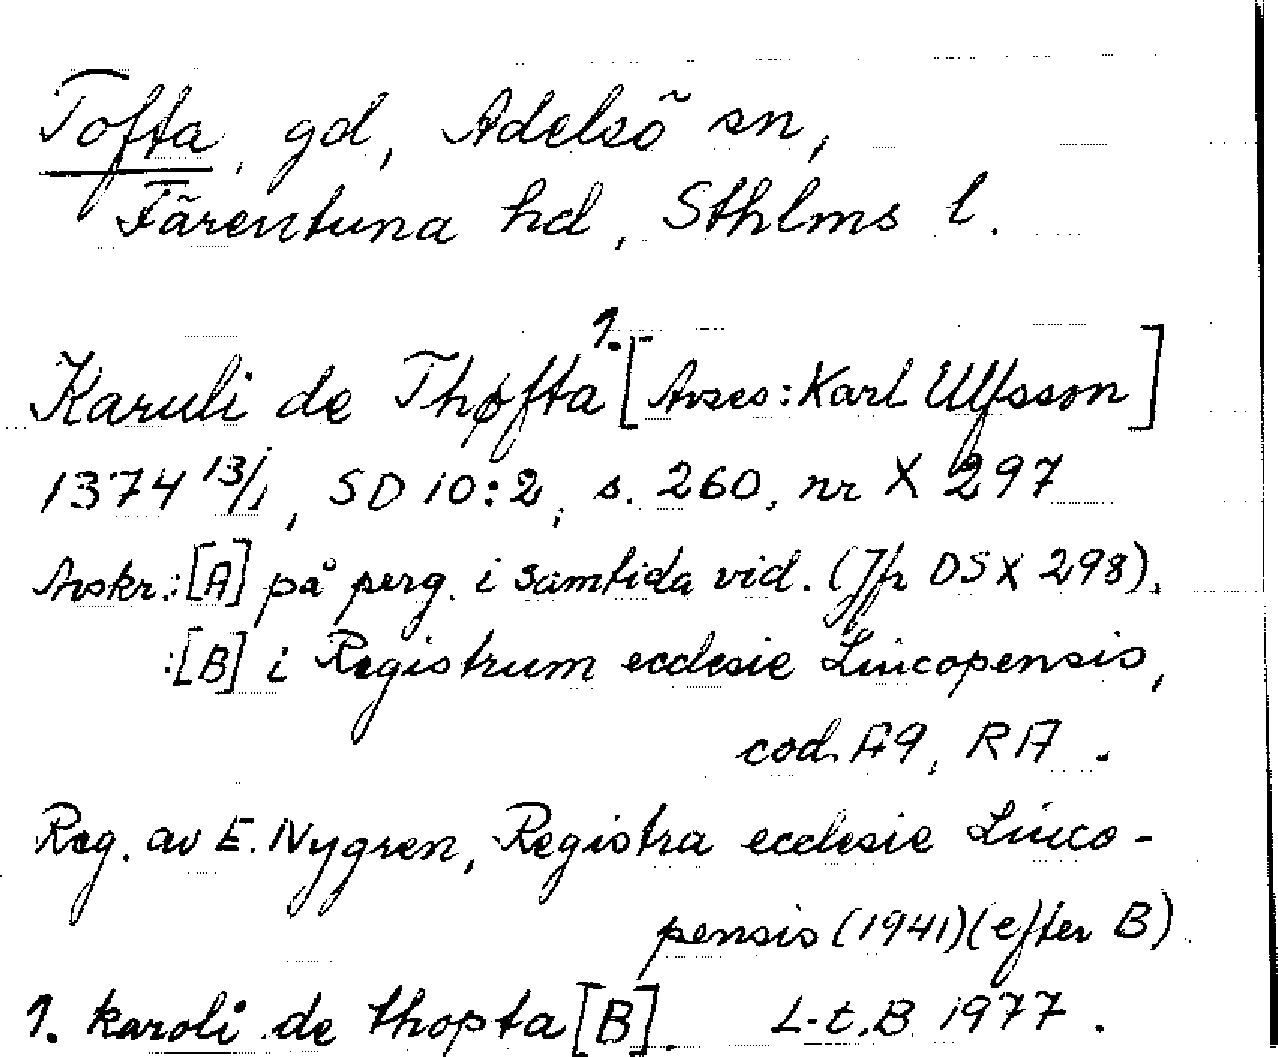 Tofta, gd, Adelsö sn,
Färentuna hd, Sthlms l.
Karuli de Thøfta 1. [Avses: Karl Ulfsson]
1374 13/1, SD 10:2, s. 260, nr X 297
Avskr.: [A] på perg. i samtida vid. (Jfr DS X 298).
: [B] i Registrum ecclesie Lincopensis,
cod. A9, RA.
Reg. av E. Nygren, Registra ecclesie Linco-
pensis (1941) (efter B)
1. karoli de thopta [B]. L-t, B 1977.